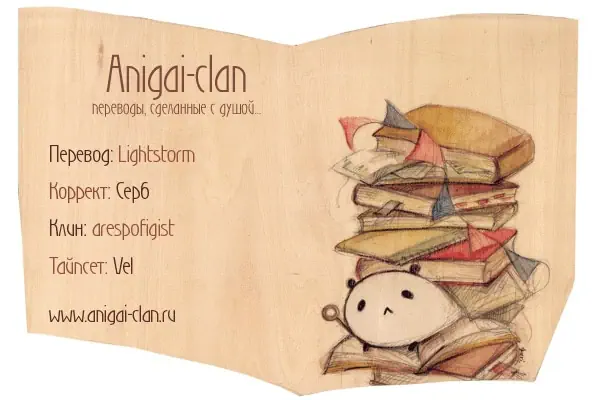 Anigai-clan
переводы, сделанные с душой...
Перевод: Lightstorm
Коррект: Серб
Клин: arespofigist
Тайпсет: Vel
www.anigai-clan.ru